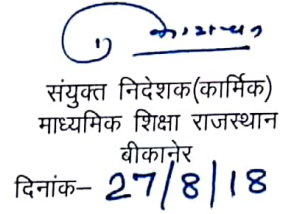 संयुक्त निदेशक(कार्मिक)
माध्यमिक शिक्षा राजस्थान
बीकानेर
दिनांक– 27/8/18